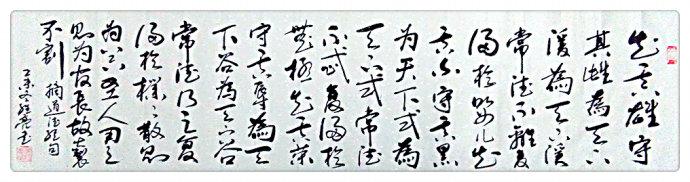 知其雄守
其雌為天下
溪為天下溪
常德不離復
歸於嬰兒知
其白守其黑
為天下式為
天下式常德
不忒復歸於
無極知其榮
守其辱為天
下谷為天下谷
常德乃足復
歸於樸樸散則
為器聖人用之
則為官長故製
不割 摘道德經句